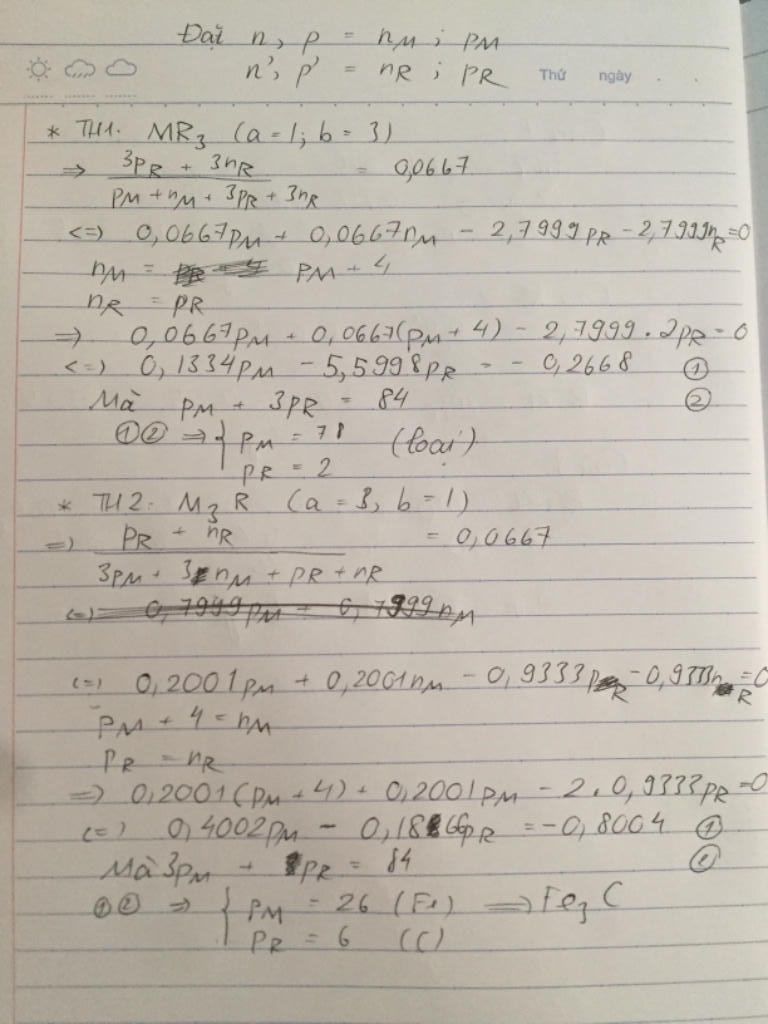 Đặt n, p = nM ; pM
n', p' = nR ; pR
Thứ ngày . .
* TH1. MR3 (a=1; b=3)
=> (3pR + 3nR) / (pM + nM + 3pR + 3nR) = 0,0667
<=> 0,0667pM + 0,0667nM - 2,7999pR - 2,7999nR = 0
nM = pM + 4,
nR = pR
=> 0,0667pM + 0,0667(pM + 4) - 2,7999 . 2pR = 0
<=> 0,1334pM - 5,5998pR = - 0,2668 ①
Mà pM + 3pR = 84 ②
①② => { pM = 78 (loại)
pR = 2
* TH2. M3R (a = 3, b = 1)
=> (pR + nR) / (3pM + 3nM + pR + nR) = 0,0667
(=) 0,7999pM + 0,7999nM
(=) 0,2001pM + 0,2001nM - 0,9333pR - 0,9333nR = 0
pM + 4 = nM
pR = nR
=> 0,2001(pM + 4) + 0,2001pM - 2 . 0,9333pR = 0
(=) 0,4002pM - 0,1866pR = - 0,8004 ①
Mà 3pM + pR = 84
①② => { pM = 26 (Fe) => Fe3C
pR = 6 (C)